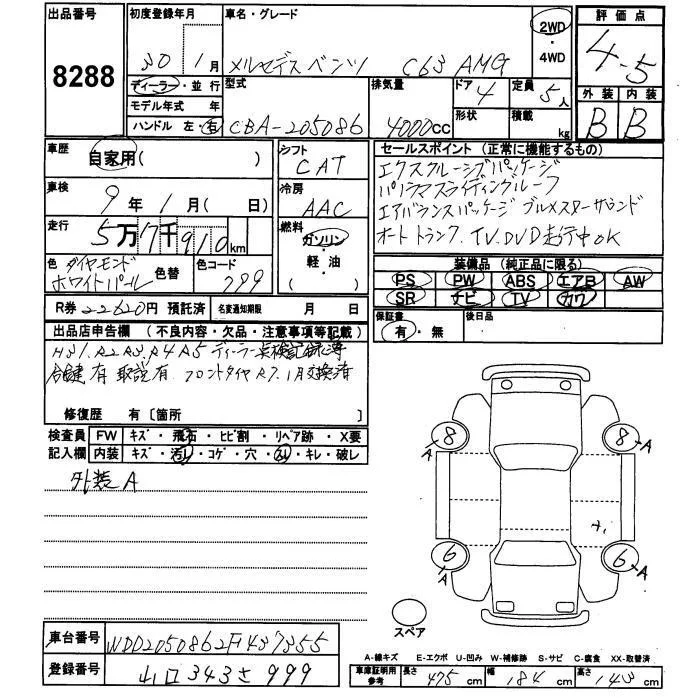 出品番号
8288
初度登録年月
30年1月
ディーラー・並行
モデル年式 年
ハンドル 左・右
車名・グレード
メルセデスベンツ C63 AMG
2WD
・
4WD
型式
CBA-205086
排気量
4000cc
ドア
4
形状
定員
5人
積載
kg
評価点
4.5
外装 内装
B B
車歴
自家用( )
車検
9年1月( 日)
走行
5万7千910km
色 ダイヤモンド
ホワイトパール
色替
色コード
799
シフト
CAT
冷房
AAC
燃料
ガソリン
軽・油
( )
R券 22620円 預託済
名変通知期限 月 日
セールスポイント(正常に機能するもの)
エクスクルーシブパッケージ
パノラマスライディングルーフ
エアバランスパッケージ ブルメスターサウンド
オートトランク.TV.DVD走行中OK
装備品(純正品に限る)
PS PW ABS エアB AW
SR ナビ TV カワ
保証書
有・無
後日品
出品店申告欄(不良内容・欠品・注意事項等記載)
H31.R2.R3.R4.R5 ディーラー点検記録簿
合鍵有 取説有 フロントタイヤR7.1月交換済
修復歴 有〔箇所 〕
検査員
記入欄
FW キズ・飛石・ヒビ割・リペア跡・X要
内装 キズ・汚れ・コゲ・穴・スレ・キレ・破レ
外装A
8 A
8 A
6 A
6 A
スペア
車台番号
WDD2050862F437355
登録番号
山口343さ999
A-線キズ E-エクボ U-凹み W-補修跡 S-サビ C-腐食 XX-取替済
車庫証明用
参考
長さ
475cm
幅
184cm
高さ
143cm